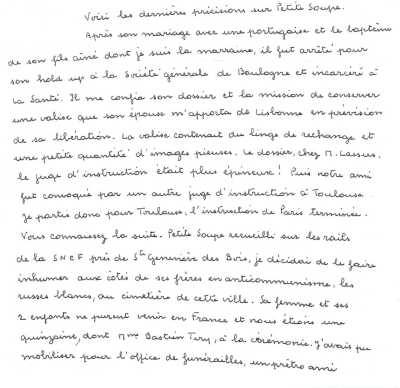 Voici les dernières précisions sur Petite Soupe.
Après son mariage avec une portugaise et le baptême
de son fils aîné dont je suis la marraine, il fut arrêté pour
son hold up à la Société générale de Boulogne et incarcéré à
La Santé. Il me confia son dossier et la mission de conserver
une valise que son épouse m'apporta de Lisbonne en prévision
de sa libération. La valise contenait du linge de rechange et
une petite quantité d'images pieuses. Le dossier, chez M. Lassus,
le juge d'instruction était plus épineux ! Puis notre ami
fut convoqué par un autre juge d'instruction à Toulouse
Je partis donc pour Toulouse, l'instruction de Paris terminée.
Vous connaissez la suite. Petite Soupe recueilli sur les rails
de la SNCF près de Ste Geneviève des Bois, je décidai de le faire
inhumer aux côtés de ses frères en anticommunisme, les
russes blancs, au cimetière de cette ville. Sa femme et ses
2 enfants ne purent venir en France et nous étions une
quinzaine, dont Mme Bastien Tery, à la cérémonie. J'avais pu
mobiliser pour l'office de funérailles, un prêtre ami